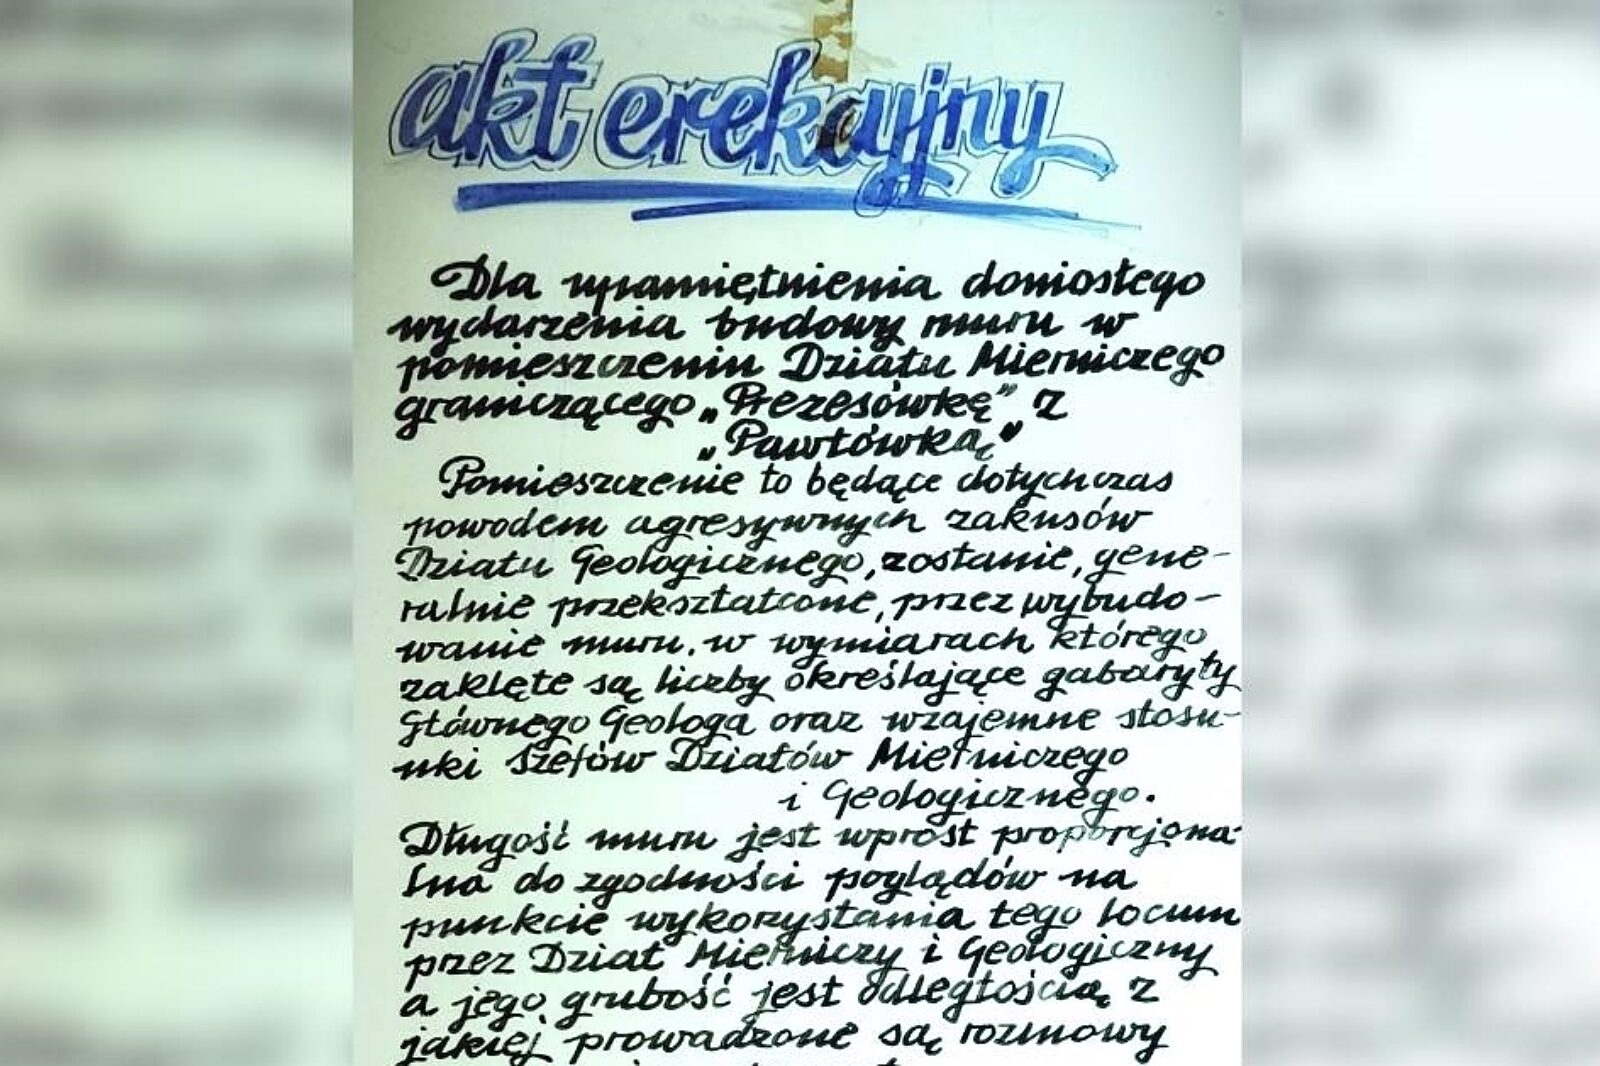 akt erekcyjny
Dla upamiętnienia doniosłego
wydarzenia budowy muru w
pomieszczeniu Działu Mierniczego
graniczącego „Prezesówkę” z
„Pawłówką”
Pomieszczenie to będące dotychczas
powodem agresywnych zakusów
Działu Geologicznego, zostanie, gene-
ralnie przekształcone, przez wybudo-
wanie muru. w wymiarach którego
zaklęte są liczby określające gabaryty
Głównego Geologa oraz wzajemne stosu-
nki szefów Działów Mierniczego
i Geologicznego.
Długość muru jest wprost proporcjona-
lna do zgodności poglądów na
punkcie wykorzystania tego locum
przez Dział Mierniczy i Geologiczny
a jego grubość jest odległością z
jakiej prowadzone są rozmowy